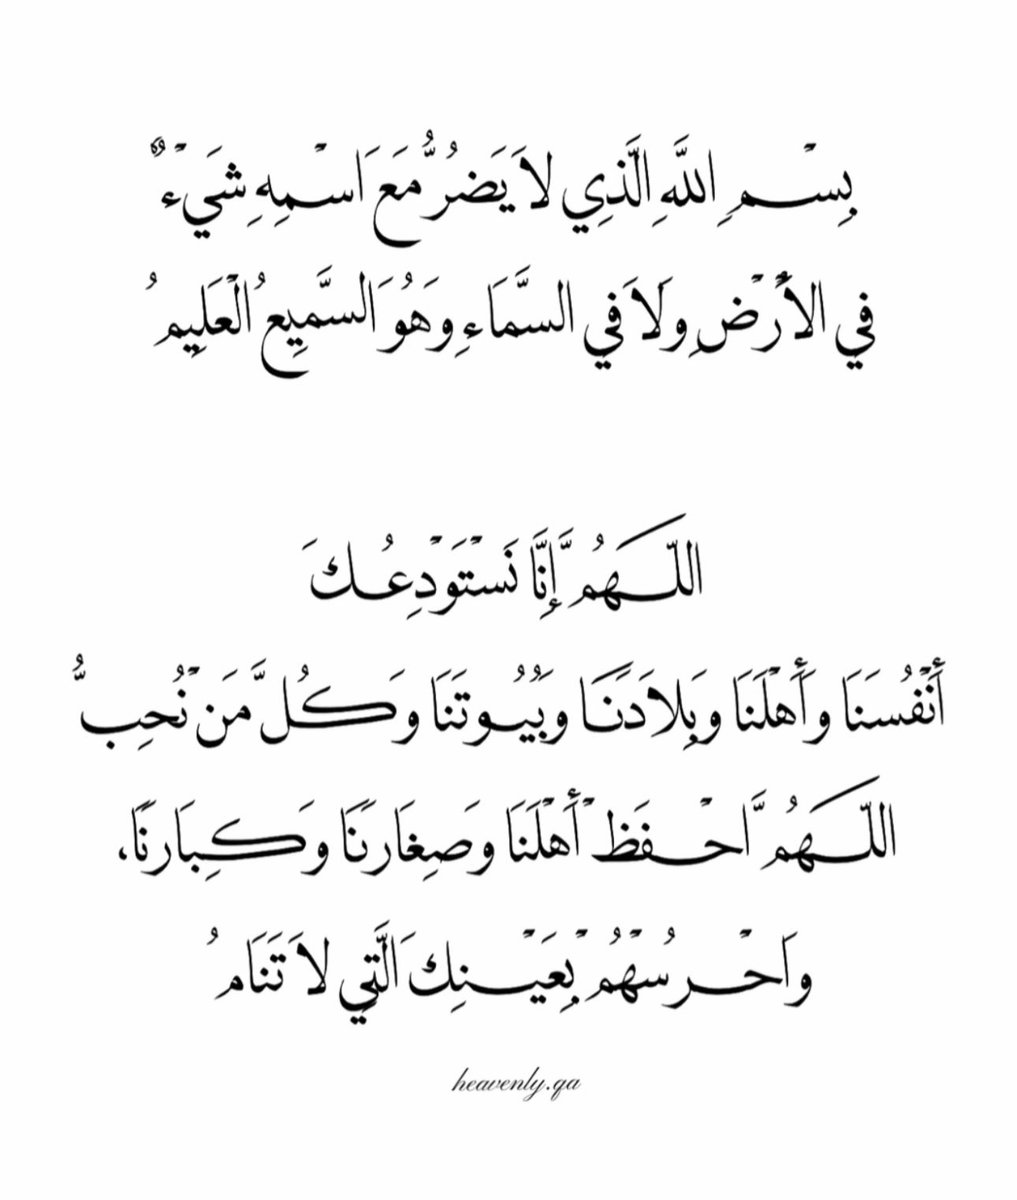 بِسْمِ اللَّهِ الَّذِي لاَ يَضُرُّ مَعَ اسْمِهِ شَيْءٌ
فِي الأَرْضِ وَلاَ فِي السَّمَاءِ وَهُوَ السَّمِيعُ الْعَلِيمُ
اللّهُمَّ إِنَّا نَسْتَوْدِعُكَ
أَنْفُسَنَا وَأَهْلَنَا وَبِلاَدَنَا وَبُيُوتَنَا وَكُلَّ مَنْ نُحِبُّ
اللّهُمَّ احْفَظْ أَهْلَنَا وَصِغَارَنَا وَكِبَارَنَا،
وَاحْرُسْهُمْ بِعَيْنِكَ الَّتِي لاَ تَنَامُ
heavenly.qa